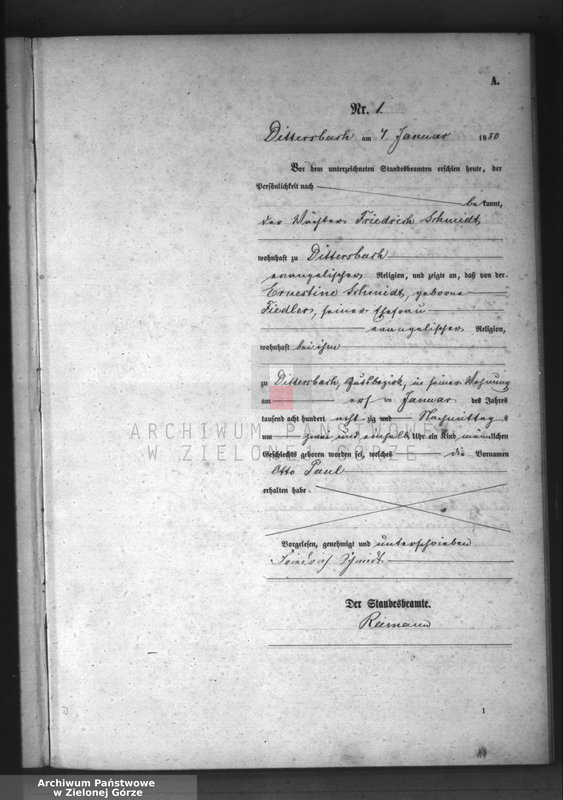 A.
Nr. 1.
Dittersbach am 4. Januar 1880
Vor dem unterzeichneten Standesbeamten erschien heute, der
Persönlichkeit nach
bekannt,
der Wächter Friedrich Schmidt
wohnhaft zu Dittersbach
evangelischer Religion, und zeigte an, daß von der
Ernestine Schmidt, geborne
Fiedler, seiner Ehefrau
evangelischer Religion,
wohnhaft bei ihm
zu Dittersbach, Gutsbezirk, in seiner Wohnung
am ersten Januar des Jahres
tausend acht hundert achtzig und Nachmittags
um und einhalb Uhr ein Kind männlichen
Geschlechts geboren worden sei, welches die Vornamen
Otto Paul
erhalten habe.
Vorgelesen, genehmigt und unterschrieben
Friedrich Schmidt
Der Standesbeamte.
Reimann
1
ARCHIWUM PAŃSTWOWE
W ZIELONEJ GÓRZE
Archiwum Państwowe
w Zielonej Górze